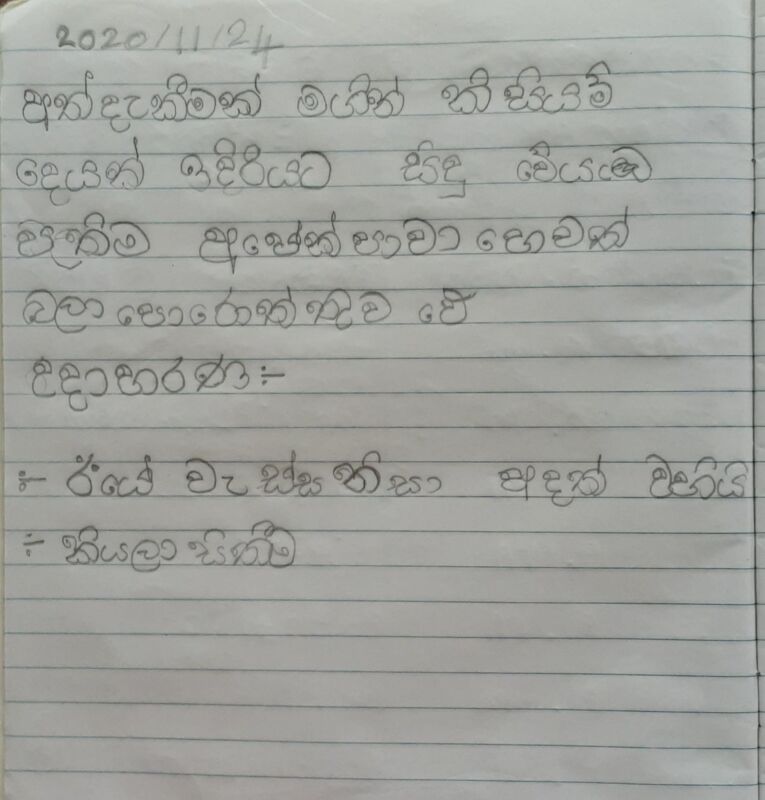 2020/11/24
අත්දැකීමක් මගින් කිසියම්
දෙයක් ඉදිරියට සිදු වේයැයි
සිතීම අපේක්ෂාවා හෙවත්
බලාපොරොත්තුව වේ
උදාහරණ :-
:- ඊයේ වැස්ස නිසා අදත් වහියි
:- කියලා සිතීම